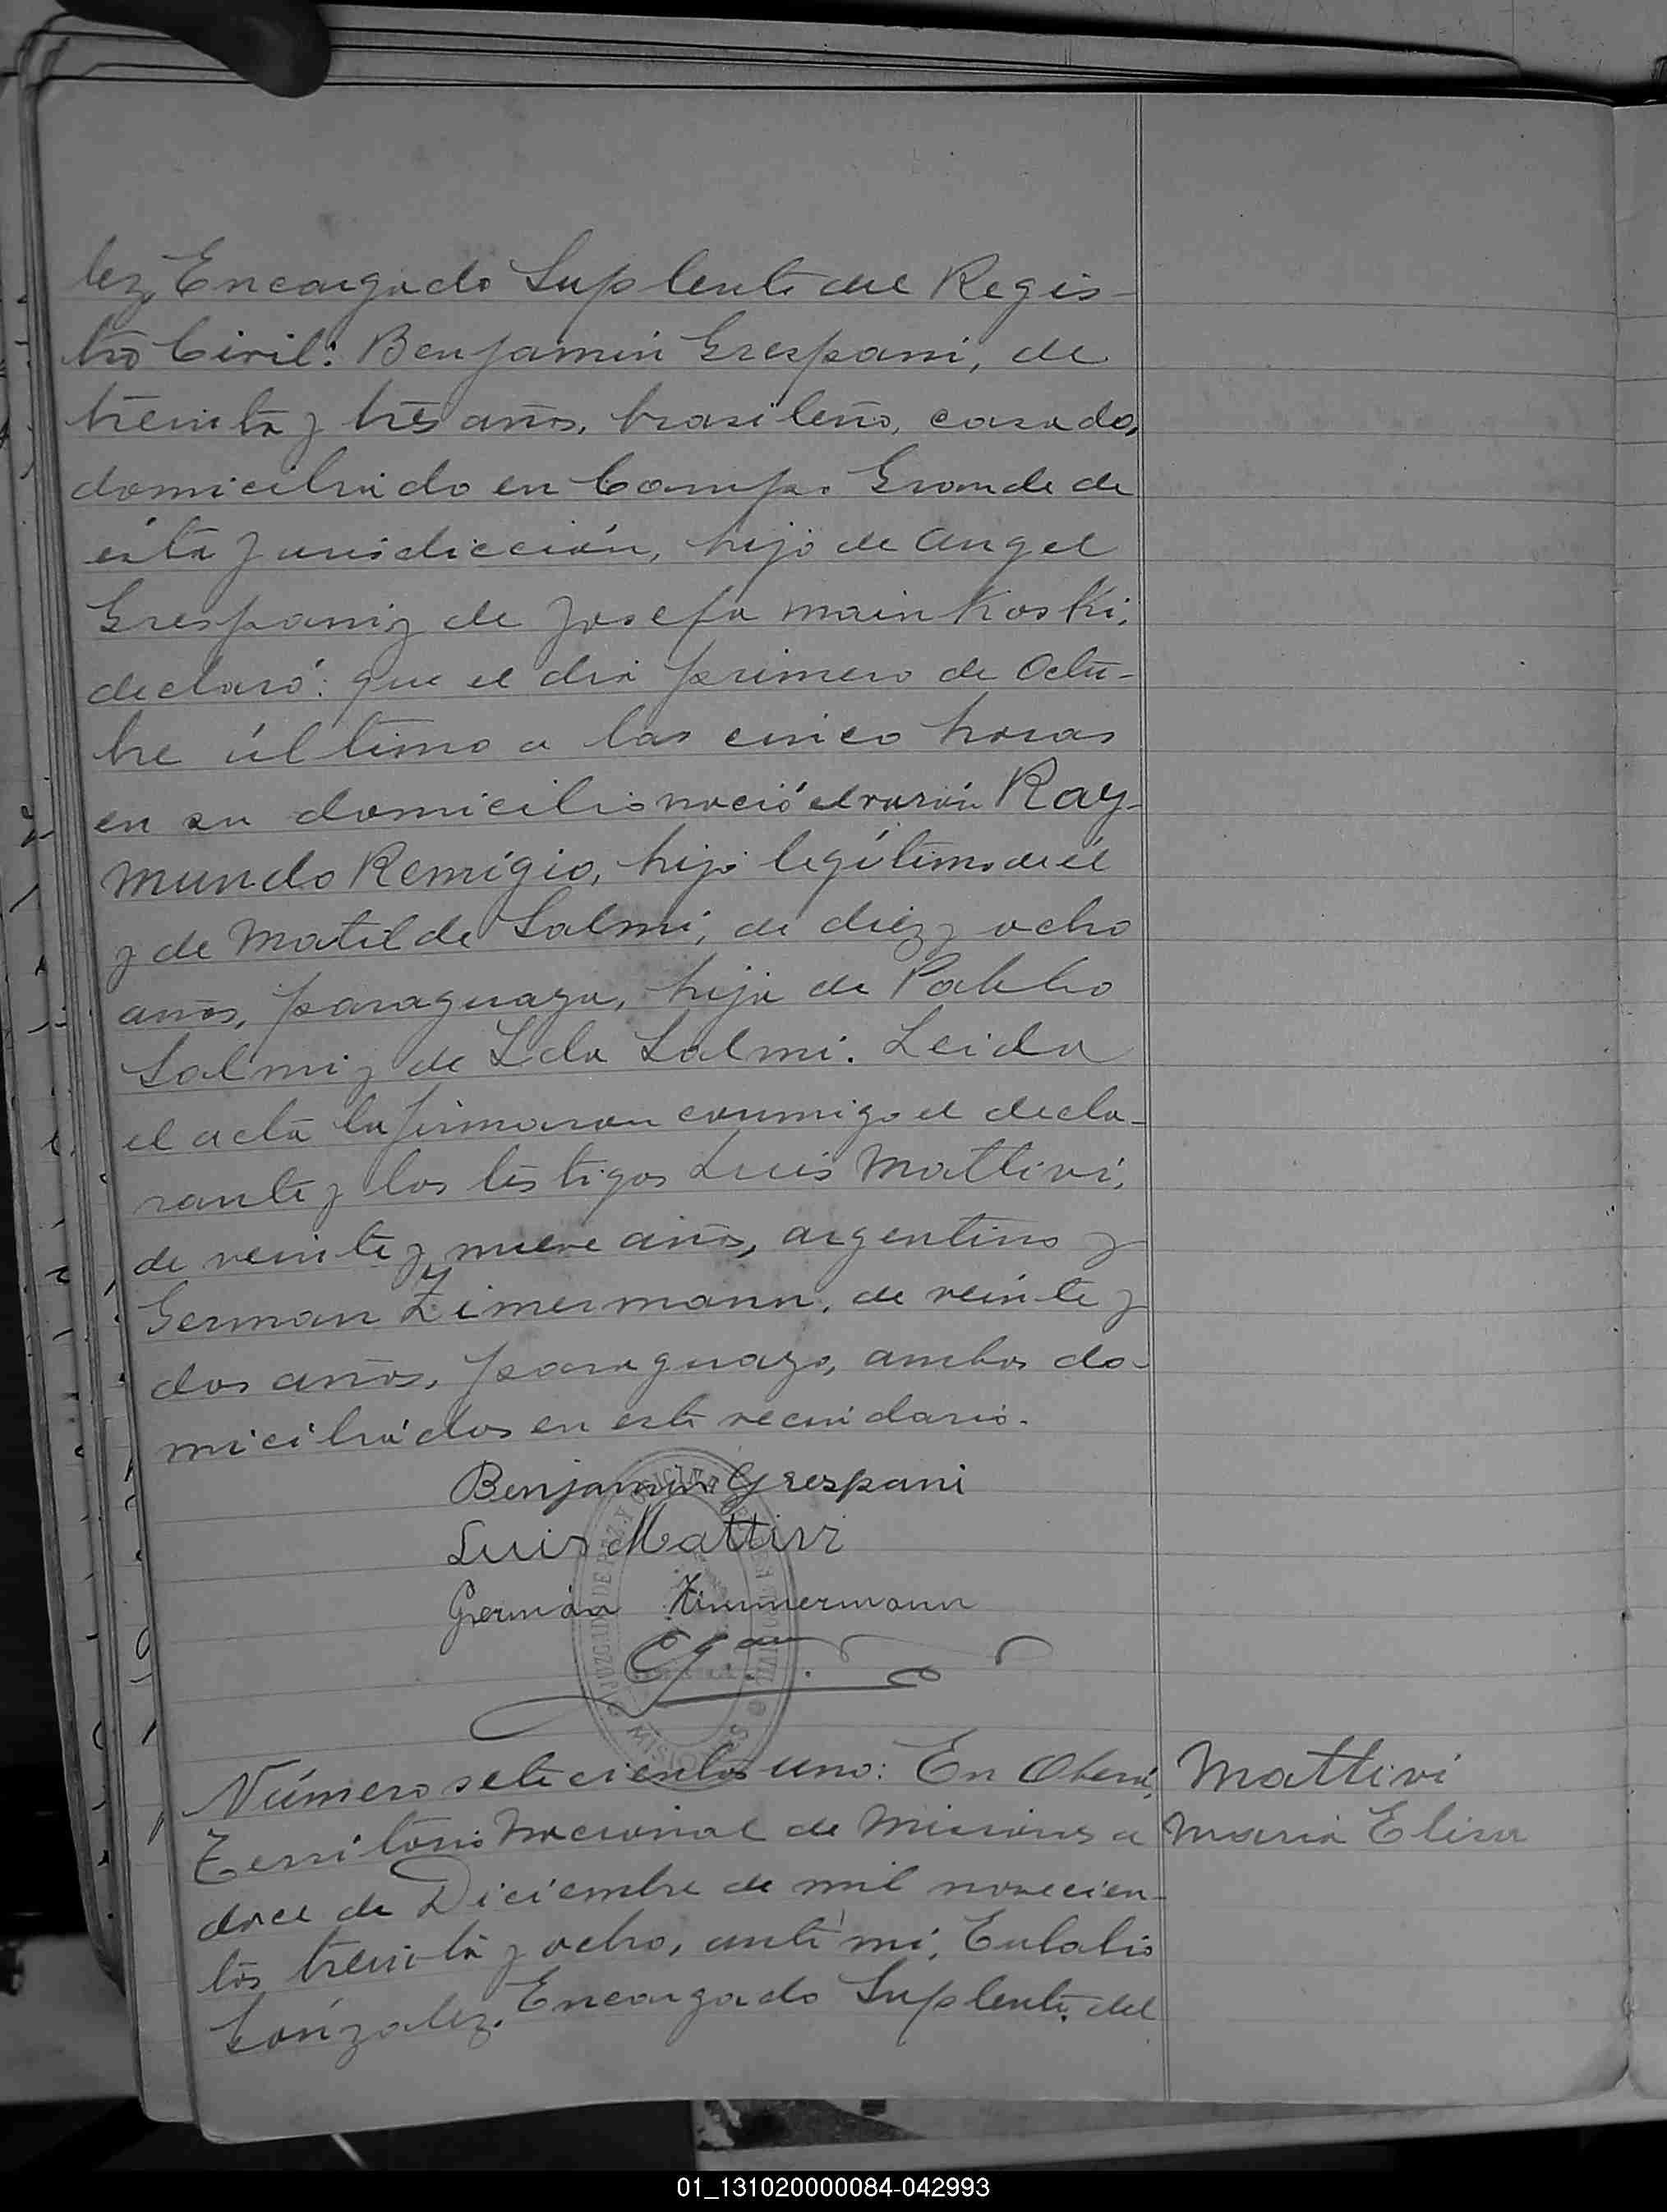 lez, Encargado Suplente del Regis-
tro Civil: Benjamin Grespani, de
treinta y tres años, brasileño, casado,
domiciliado en Campo Grande de
ésta Jurisdicción, hijo de Angel
Grespani y de Josefa Mainkoski,
declaró: que el dia primero de Octu-
bre último a las cinco horas
en su domicilio nació el varón Ray-
mundo Remigio, hijo legítimo de él
y de Matilde Salmi, de diez y ocho
años, paraguaya, hija de Pablo
Salmi y de Ida Salmi. Leida
el acta la firmaron conmigo el decla-
rante y los testigos Luis Mattivi,
de veinte y nueve años, argentino y
German Zimermann, de veinte y
dos años, paraguayo, ambos do-
miciliados en este vecindario.
Benjamin Grespani
Luis Mattivi
Germán Zimmermann
JUZGADO DE PAZ Y
MISIONES
Número setecientos uno: En Oberá,
Territorio Nacional de Misiones a
doce de Diciembre de mil novecien-
tos treinta y ocho, ante mi, Eulalio
Gónzalez, Encargado Suplente del
Mattivi
Maria Elisa
01_131020000084-042993